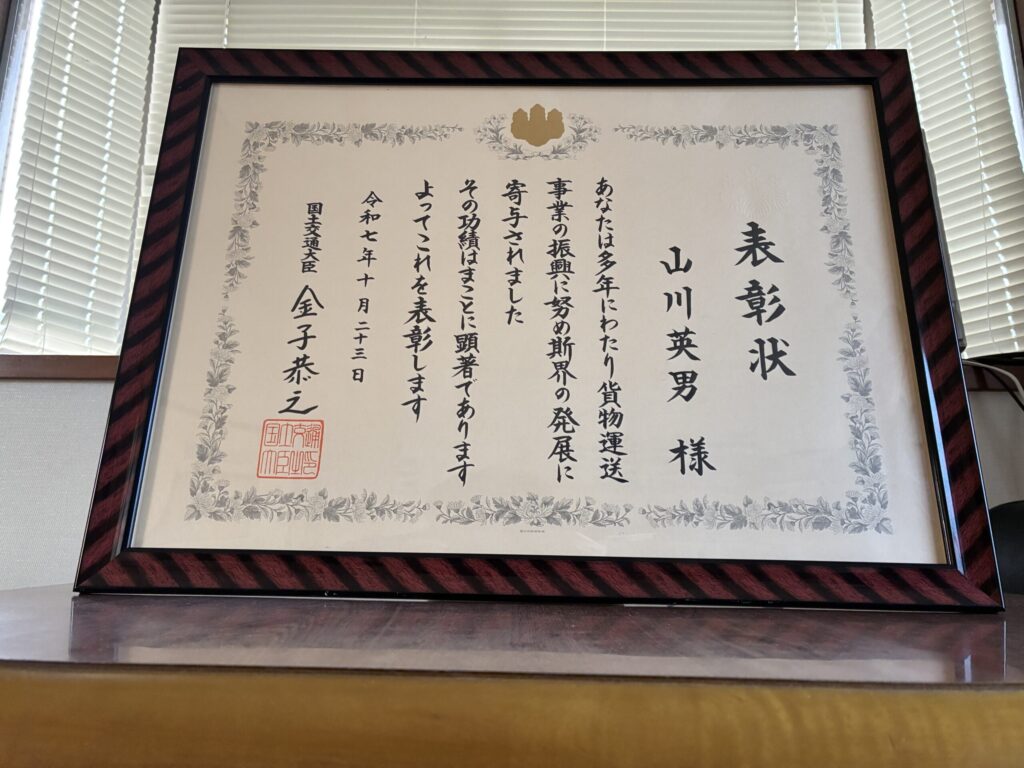 表彰状
山川英男 様
あなたは多年にわたり貨物運送
事業の振興に努め斯界の発展に
寄与されました
その功績はまことに顕著であります
よってこれを表彰します
令和七年十月二十三日
国土交通大臣 金子恭之